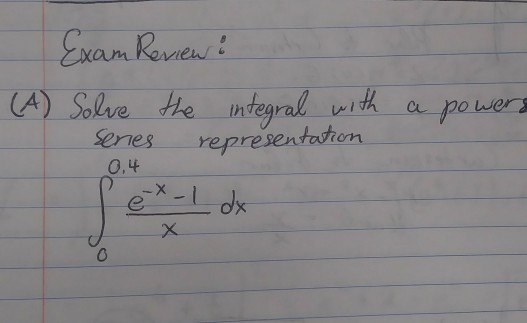 Exam Review:
(A) Solve the integral with a powers
series representation
0.4
∫ e^-x - 1 / x dx
0